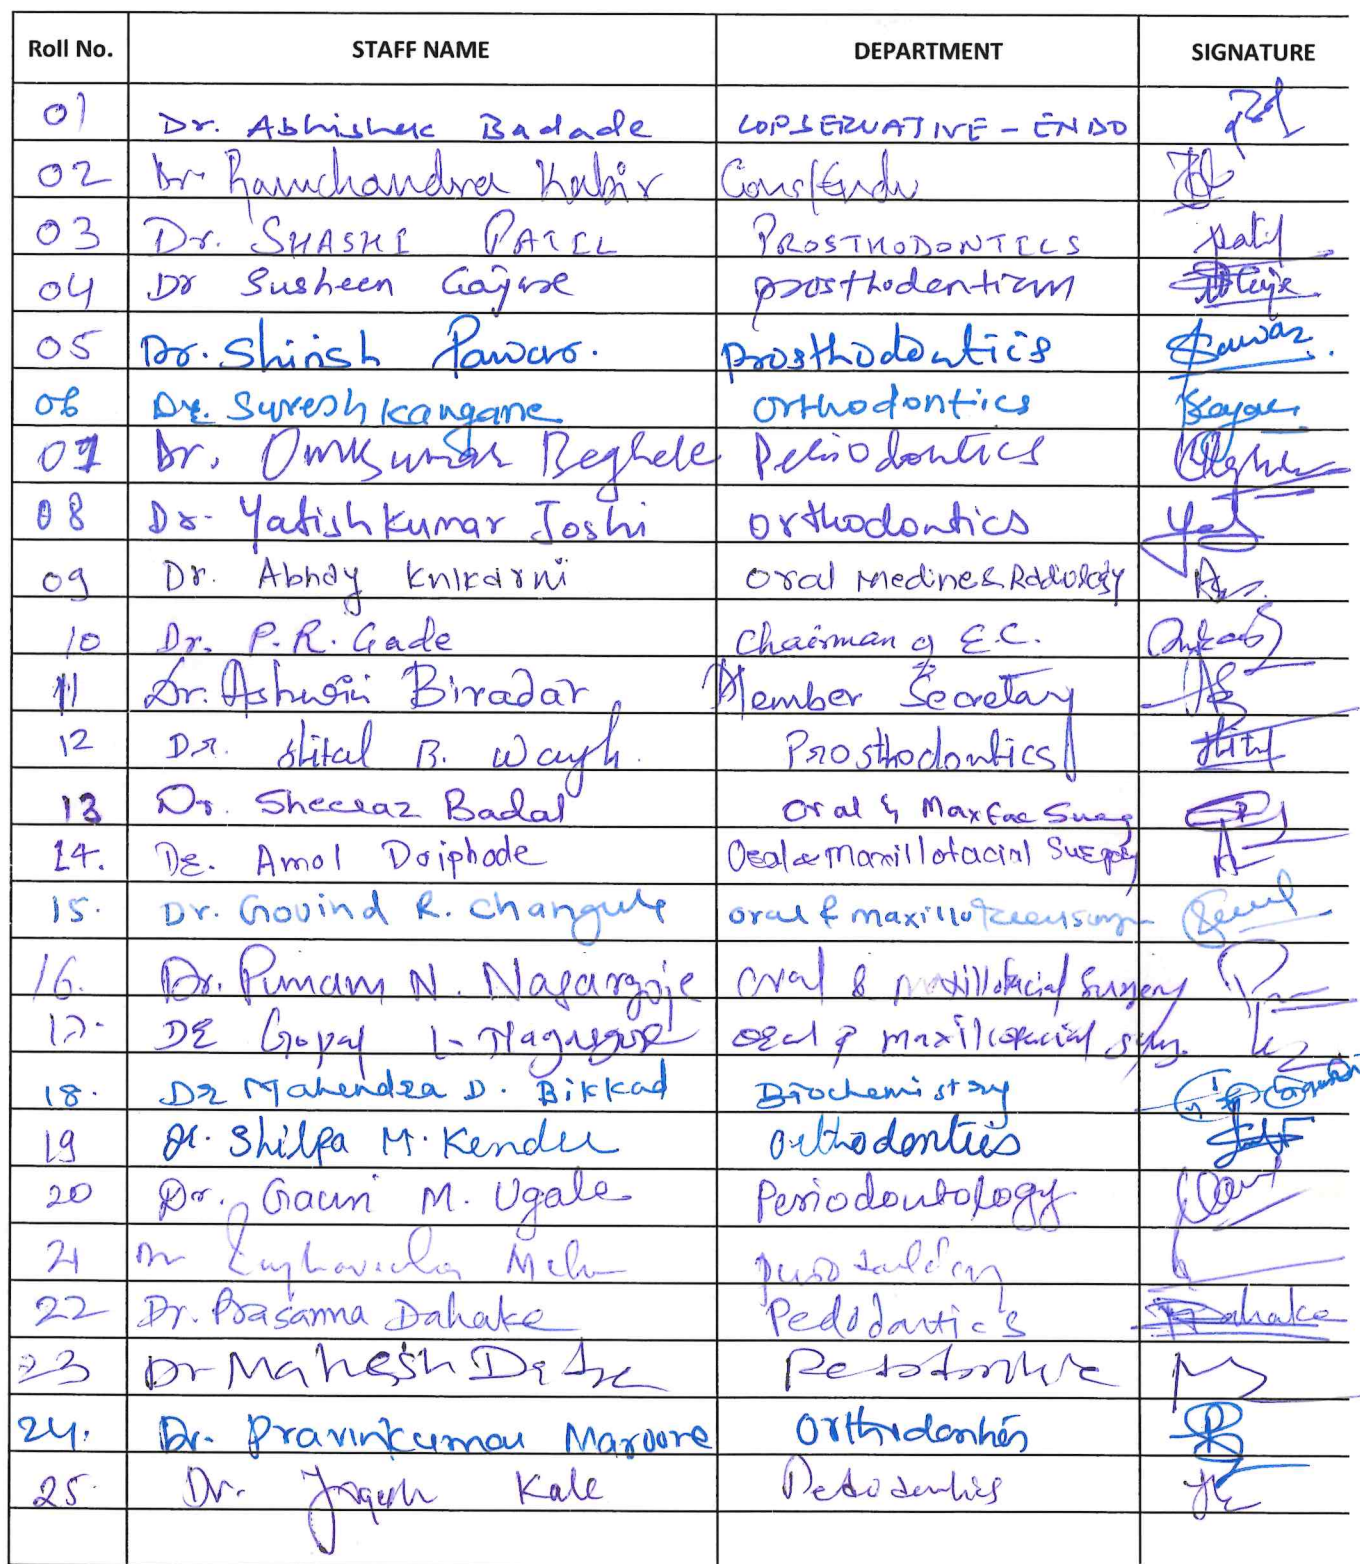 Roll No. STAFF NAME DEPARTMENT SIGNATURE
01 Dr. Abhishek Badade CONSERVATIVE - ENDO
02 Dr. Ramchandra Kabir Cons/Endo
03 Dr. SHASHI PATIL PROSTHODONTICS Patil
04 Dr Susheen Gajare prosthodontics
05 Dr. Shirish Pawar. prosthodontics Pawar
06 Dr. Suresh Kangane Orthodontics
07 Dr. Omkumar Beghele Periodontics
08 Dr. Yatishkumar Joshi orthodontics
09 Dr. Abhay Knlkarni Oral Medine & Radiology
10 Dr. P.R. Gade Chairman of E.C.
11 Dr. Ashwini Biradar Member Secretary
12 Dr. Shital B. Wagh. Prosthodontics
13 Dr. Sheeraz Badal Oral & Maxfac Surg
14. Dr. Amol Doiphode Oral & Maxillofacial Surgery
15. Dr. Govind R. Changule Oral & maxillo
16. Dr. Punam N. Nagargoje Oral & Maxillofacial Surgery
17. Dr Gopal L. Nagargoje Oral & maxillofacial
18. Dr Mahendra D. Bikkad Biochemistry
19 Dr. Shilpa M. Kendre Orthodontics
20 Dr. Gauri M. Ugale Periodontology
21 Dr
22 Dr. Prasanna Dahake Pedodantics Dahake
23 Dr Mahesh
24. Dr. Pravinkumar Maroore Orthodontics
25. Dr. Yogesh Kale Pedodontics